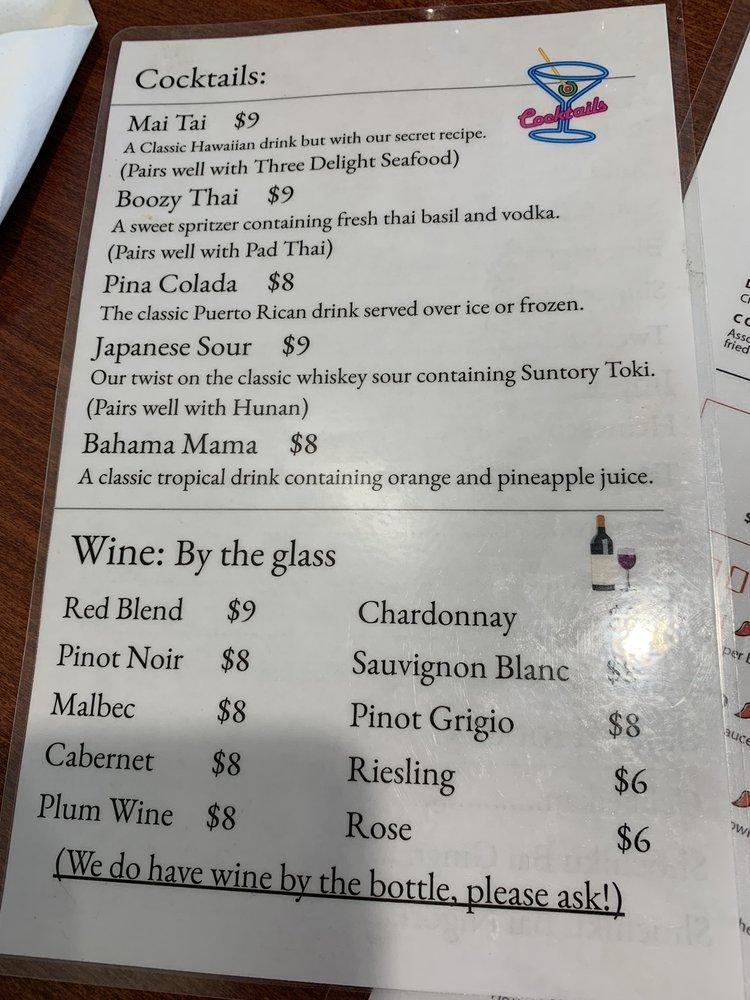 Cocktails:
Cocktails
Mai Tai $9
A Classic Hawaiian drink but with our secret recipe.
(Pairs well with Three Delight Seafood)
Boozy Thai $9
A sweet spritzer containing fresh thai basil and vodka.
(Pairs well with Pad Thai)
Pina Colada $8
The classic Puerto Rican drink served over ice or frozen.
Japanese Sour $9
Our twist on the classic whiskey sour containing Suntory Toki.
(Pairs well with Hunan)
Bahama Mama $8
A classic tropical drink containing orange and pineapple juice.
Wine: By the glass
Red Blend $9
Pinot Noir $8
Malbec $8
Cabernet $8
Plum Wine $8
Chardonnay
Sauvignon Blanc
Pinot Grigio $8
Riesling $6
Rose $6
(We do have wine by the bottle, please ask!)